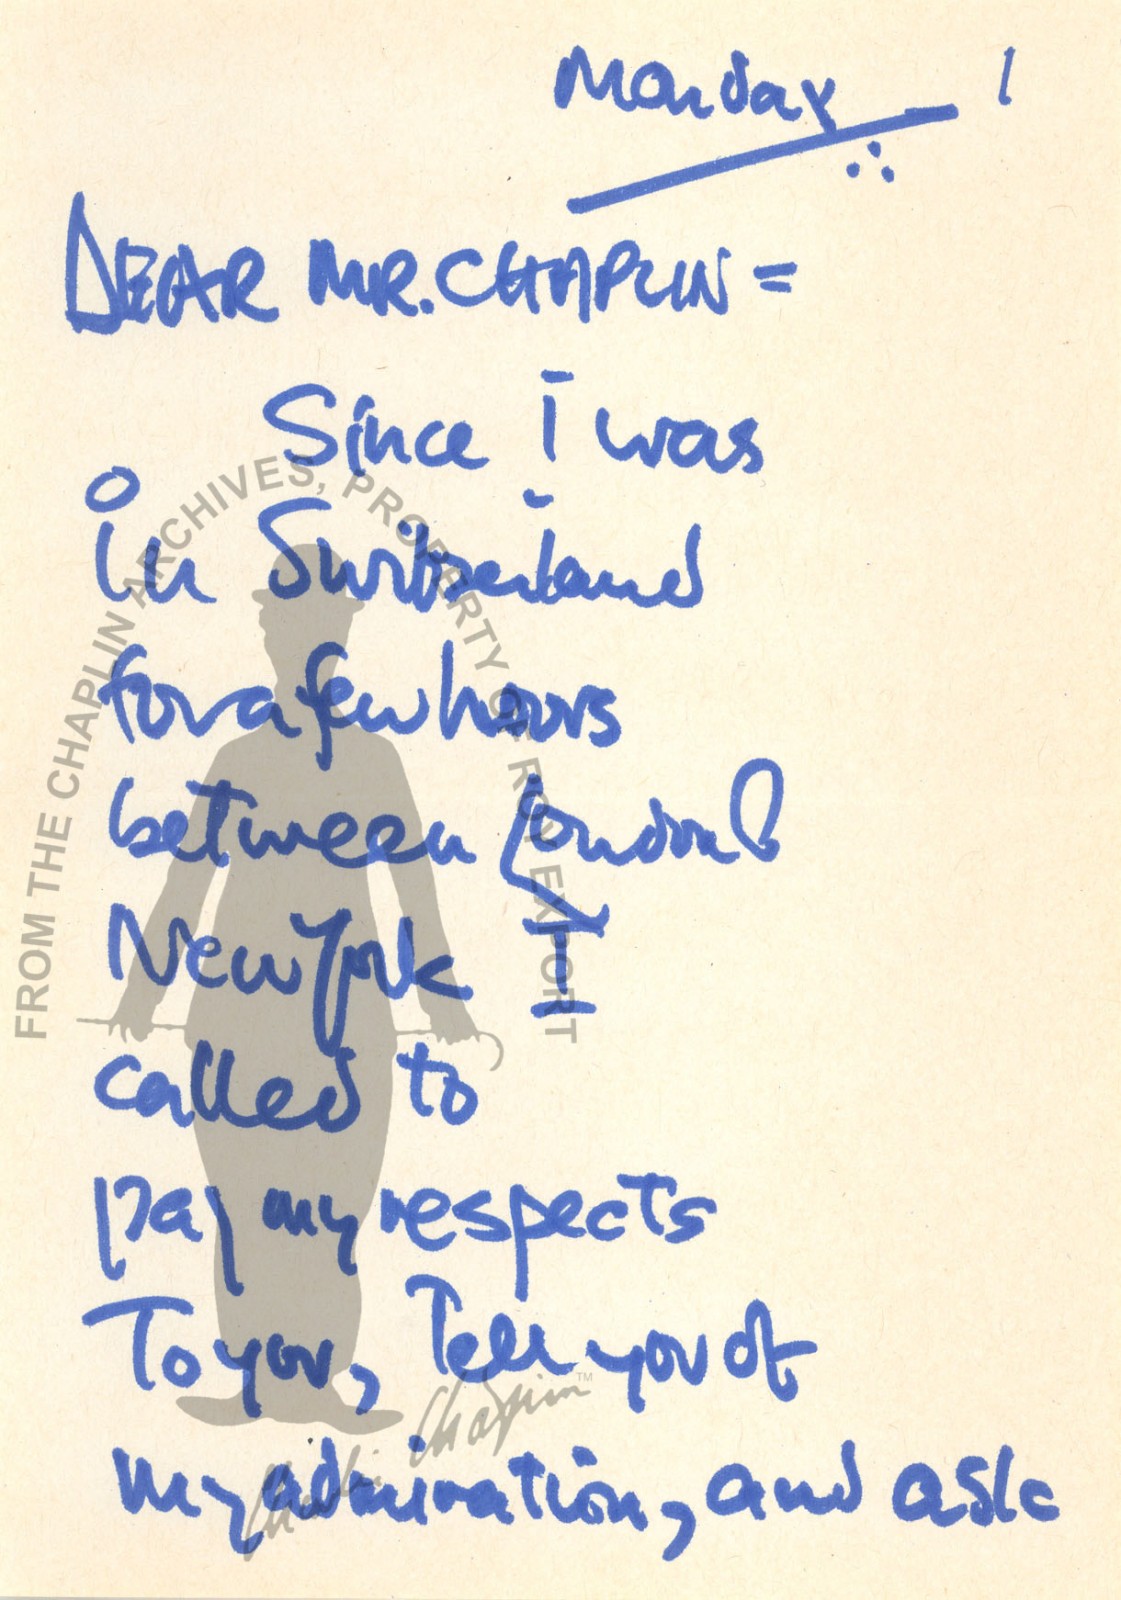 Monday 1
DEAR MR. CHAPLIN =
Since I was
in Switzerland
for a few hours
between London &
New York I
called to
pay my respects
To you, Tell you of
my admiration, and ask
FROM THE CHAPLIN ARCHIVES, PROPERTY OF ROY EXPORT
Charlie Chaplin ™